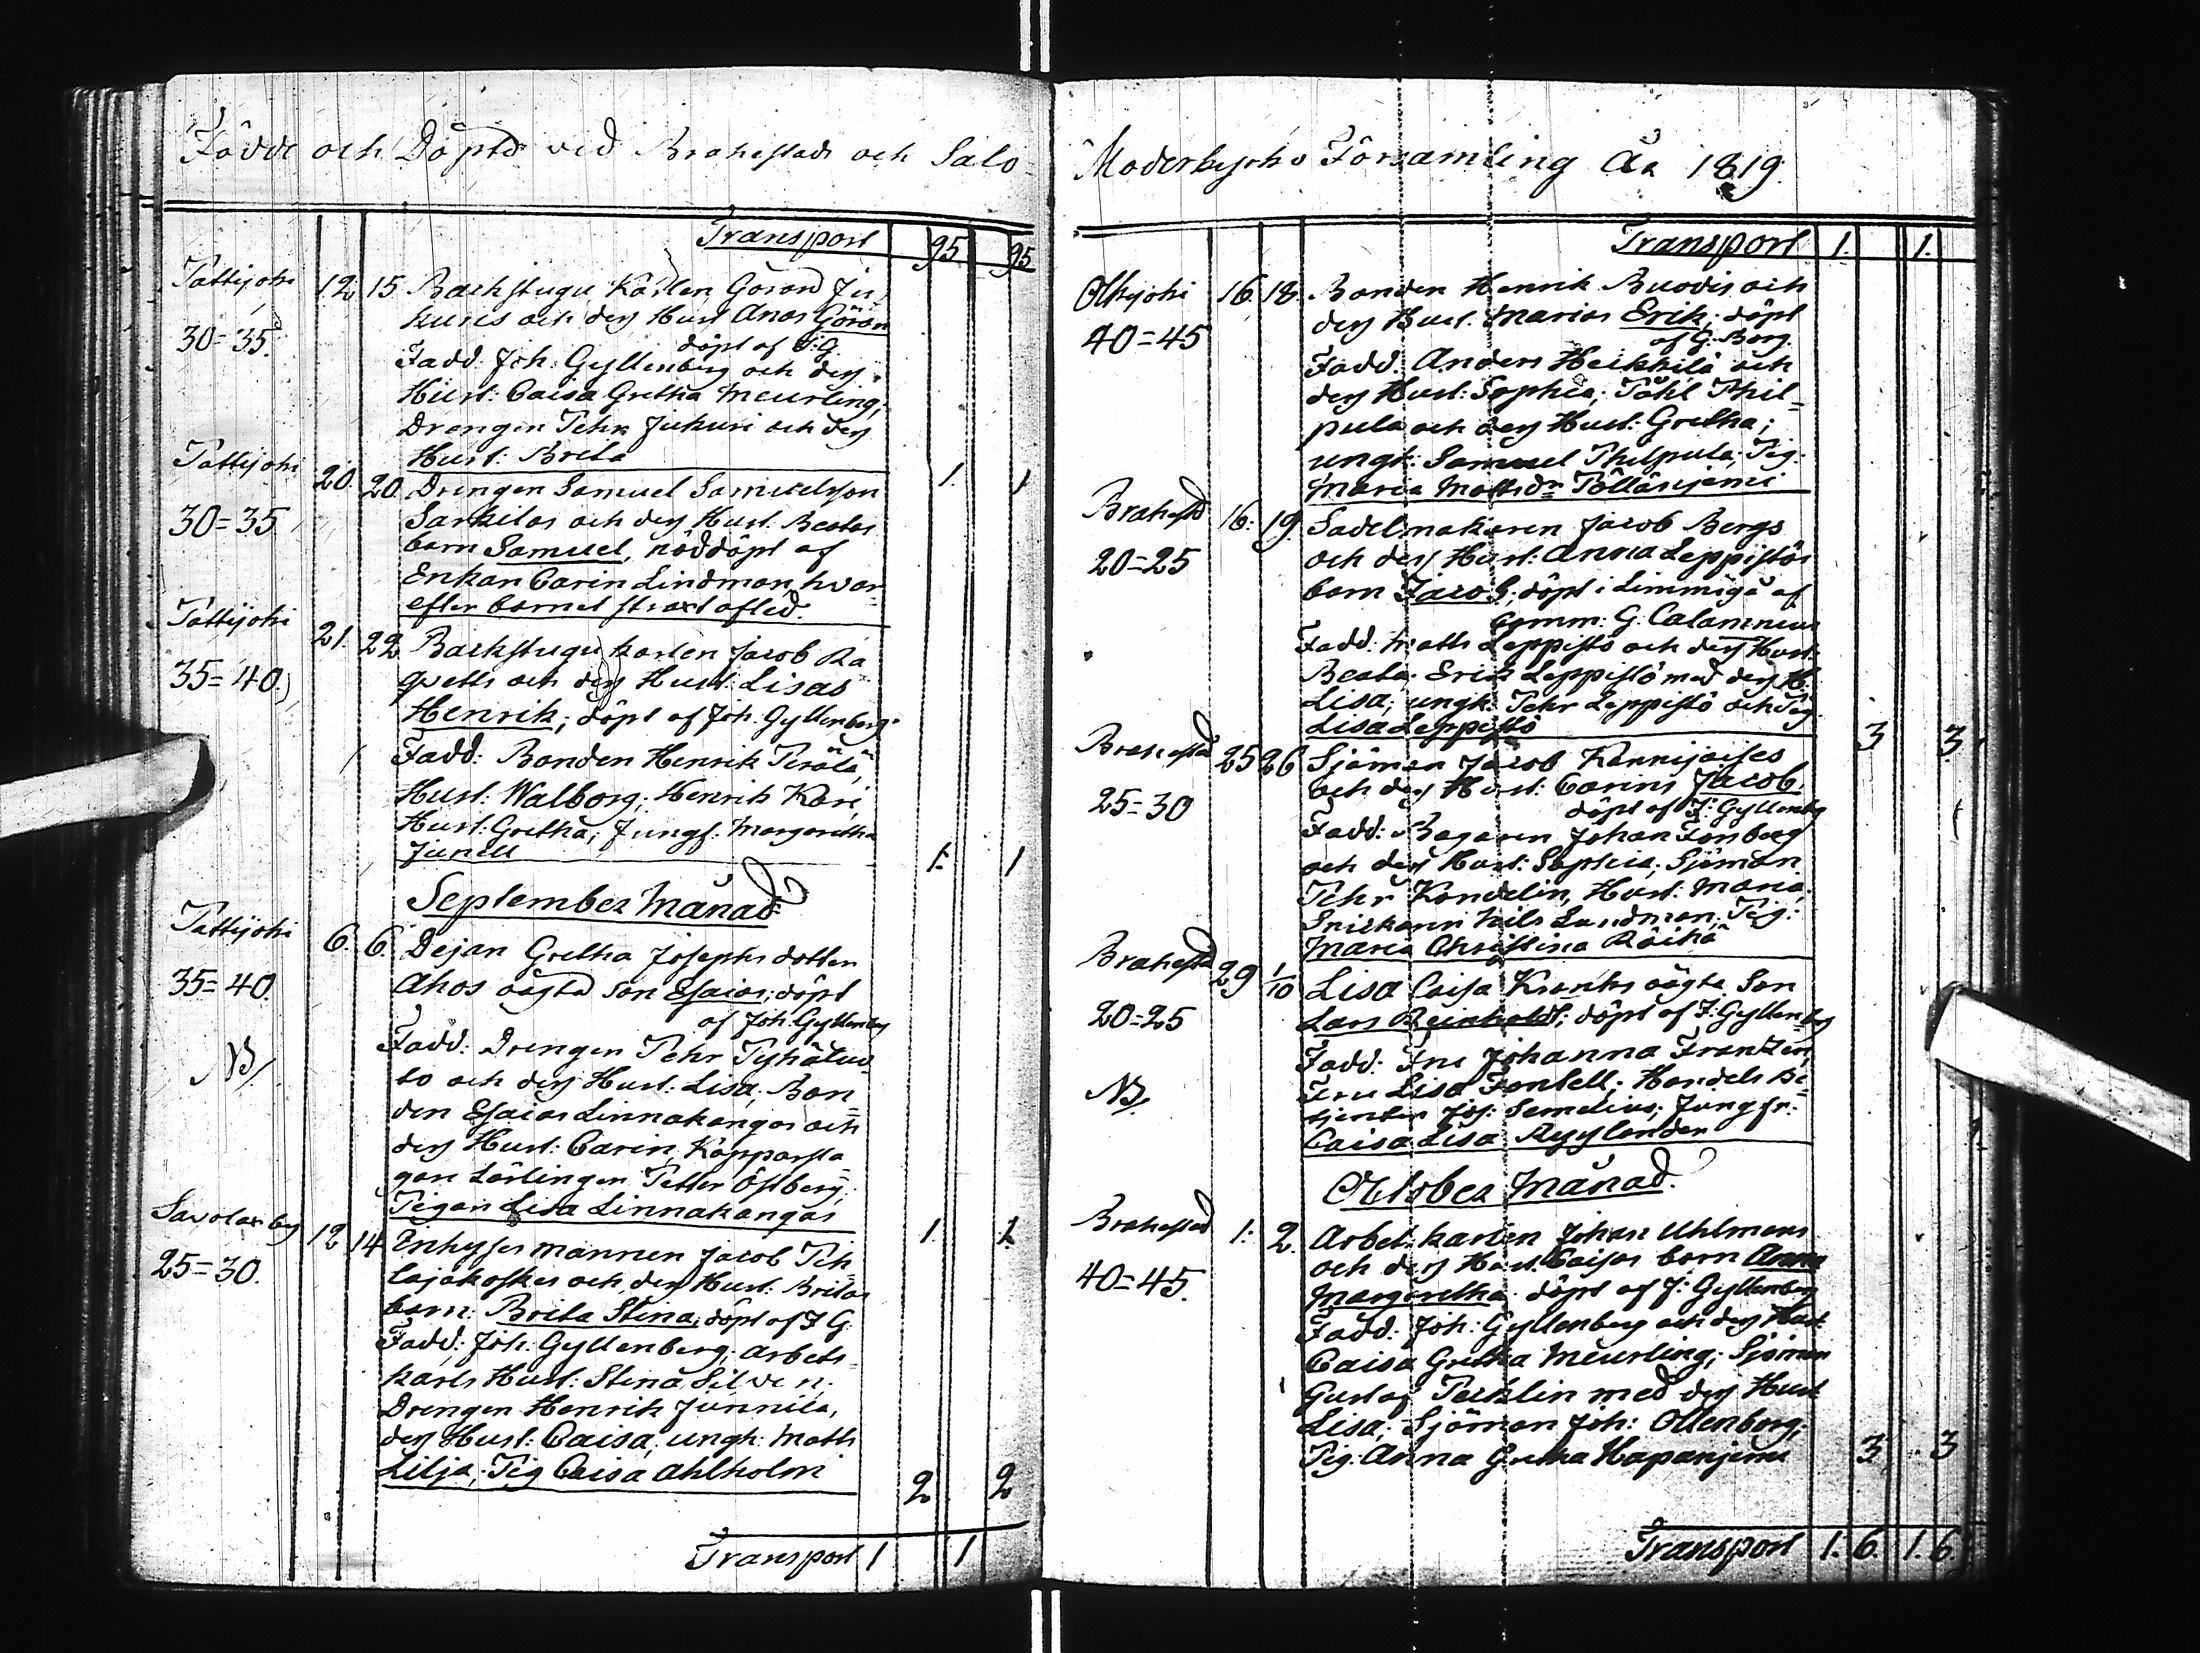 Födde och Döpte vid Brahestads och Salo
Transport 95 95
Pattijoki 12. 15 Backstugu Karlen Göran Ju
kuris och des Hust Anas Göran
30=35. döpt af J: G.
Fadd. Joh: Gyllenberg och des
Hust: Caisa Gretha Meurling;
Drengen Pehr Jukuri och des
Hust: Brita 1. 1
Pattijoki 20. 20 Drengen Samuel Samuelsson
30=35 Sarkilas och des Hust. Beatas
barn Samuel, nöddöpt af
Enkan Carin Lindman, hvar
efter barnet straxt afled.
Pattijoki 21. 22 Backstugu karlen Jacob Ra
35=40. qvetts och des Hust: Lisas
Henrik; döpt af Joh. Gyllenberg.
Fadd: Bonden Henrik Perälä,
Hust: Walborg; Henrik Kari,
Hust: Gretha; Jungf: Margaretha
Junell 1. 1
September Månad
Pattijoki 6. 6. Pejan Gretha Josephs dotter
35=40. Ahos oägta son Esaias; döpt
af Joh: Gyllenberg
NB. Fadd: Drengen Pehr
to och des Hust: Lisa; Bon
den Esaias Linnakangas och
des Hust: Carin, Kopparsla
gar Lärlingen Petter Östberg;
Pigan Lisa Linnakangas 1. 1
Savolax by 12 14 Inhyses mannen Jacob Pch
25=30. lajakoskis och des Hust: Britas
barn: Brita Stina; döpt af J G.
Fadd: Joh: Gyllenberg; arbets
karls Hust: Stina Silven;
Drengen Henrik Junnila,
des Hust: Caisa; ungk: Matts
Lilja; Pig Caisa Ahlholm 2 2
Transport 1 1
Moderkyrko Församling År 1819.
Transport 1. 1.
Olkijoki 16. 18. Bonden Henrik Buodis och
40=45 des Hust: Marias Erik; döpt
af G: Borg.
Fadd: Anders Heikkilä och
des Hust: Sophia; Påhl Phil=
pula och des Hust: Gretha;
ungk: Samuel Philpula; Pig:
Maria Mattsdr Pöllänjemi
Brahestad 16. 19. Sadelmakaren Jacob Bergs
20=25 och des Hust: Anna Leppistös
barn Jacob; döpt i Limmiga af
Comm: G: Calamnius
Fadd: Matts Leppistö och des Hust:
Beata; Erik Leppistö med des H:
Lisa; ungk. Pehr Leppistö och Pig
Lisa Leppistö 3 3.
Brahestad 25 26 Sjöman Jacob
25=30 och des Hust: Carins Jacob.
döpt af J: Gyllenberg
Fadd: Bagaren Johan Fonberg
och des Hust: Sophia; Sjöman
Pehr Kondelin, Hust: Maria;
Snickaren Nils Lundman; Pig:
Maria Christina Räihä
Brahestad 29 1/10 Lisa Caisa Kranks oägta Son
20=25 Lars Reinholdt; döpt af J: Gyllenberg
Fadd: Fru Johanna Frantzen;
NB. Fru Lisa Fontell; Handels Be=
tjenten Jos: Semelius; Jungfr:
Caisa Lisa Nyylander
October Månad.
Brahestad 1. 2. Arbets karlen Johan Uhlmans
40=45. och des Hust. Caisas barn Anna
Margaretha. döpt af J: Gyllenberg
Fadd: Joh: Gyllenberg och des Hust:
Caisa Gretha Meurling; Sjöman
Gustaf Pecklin med des Hust
Lisa; Sjöman Joh: Ollenberg;
Pig: Anna Gretha Hapanjemi 3. 3
Transport 1. 6. 1. 6.